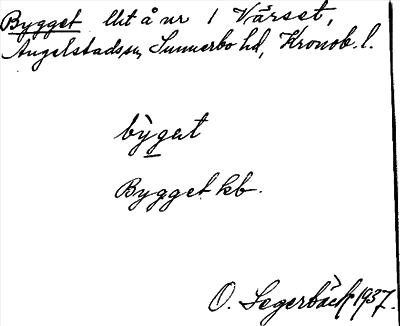 Bygget lht å nr 1 Vårset,
Angelstads sn, Sunnerbo hd, Kronob. l.
bỳget
Bygget kb.
O. Segerbäck 1937.